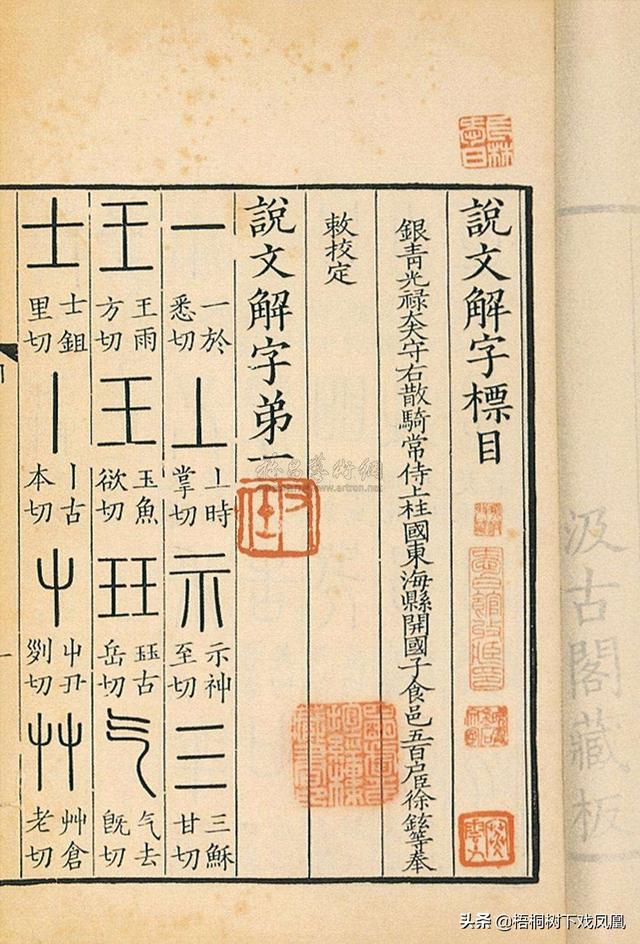 說文解字標目
銀青光祿大夫守右散騎常侍上柱國東海縣開國子食邑五百户臣徐鉉等奉
敕校定
說文解字弟一
一 一於悉切
丄 丄時掌切
示 示神至切
三 三穌甘切
王 王雨方切
王 玉魚欲切
玨 玨古岳切
气 气去既切
士 士鉏里切
丨 丨古本切
屮 屮丑列切
艸 艸倉老切
汲古閣藏板
www.artron.net
头条 @梧桐树下戏凤凰